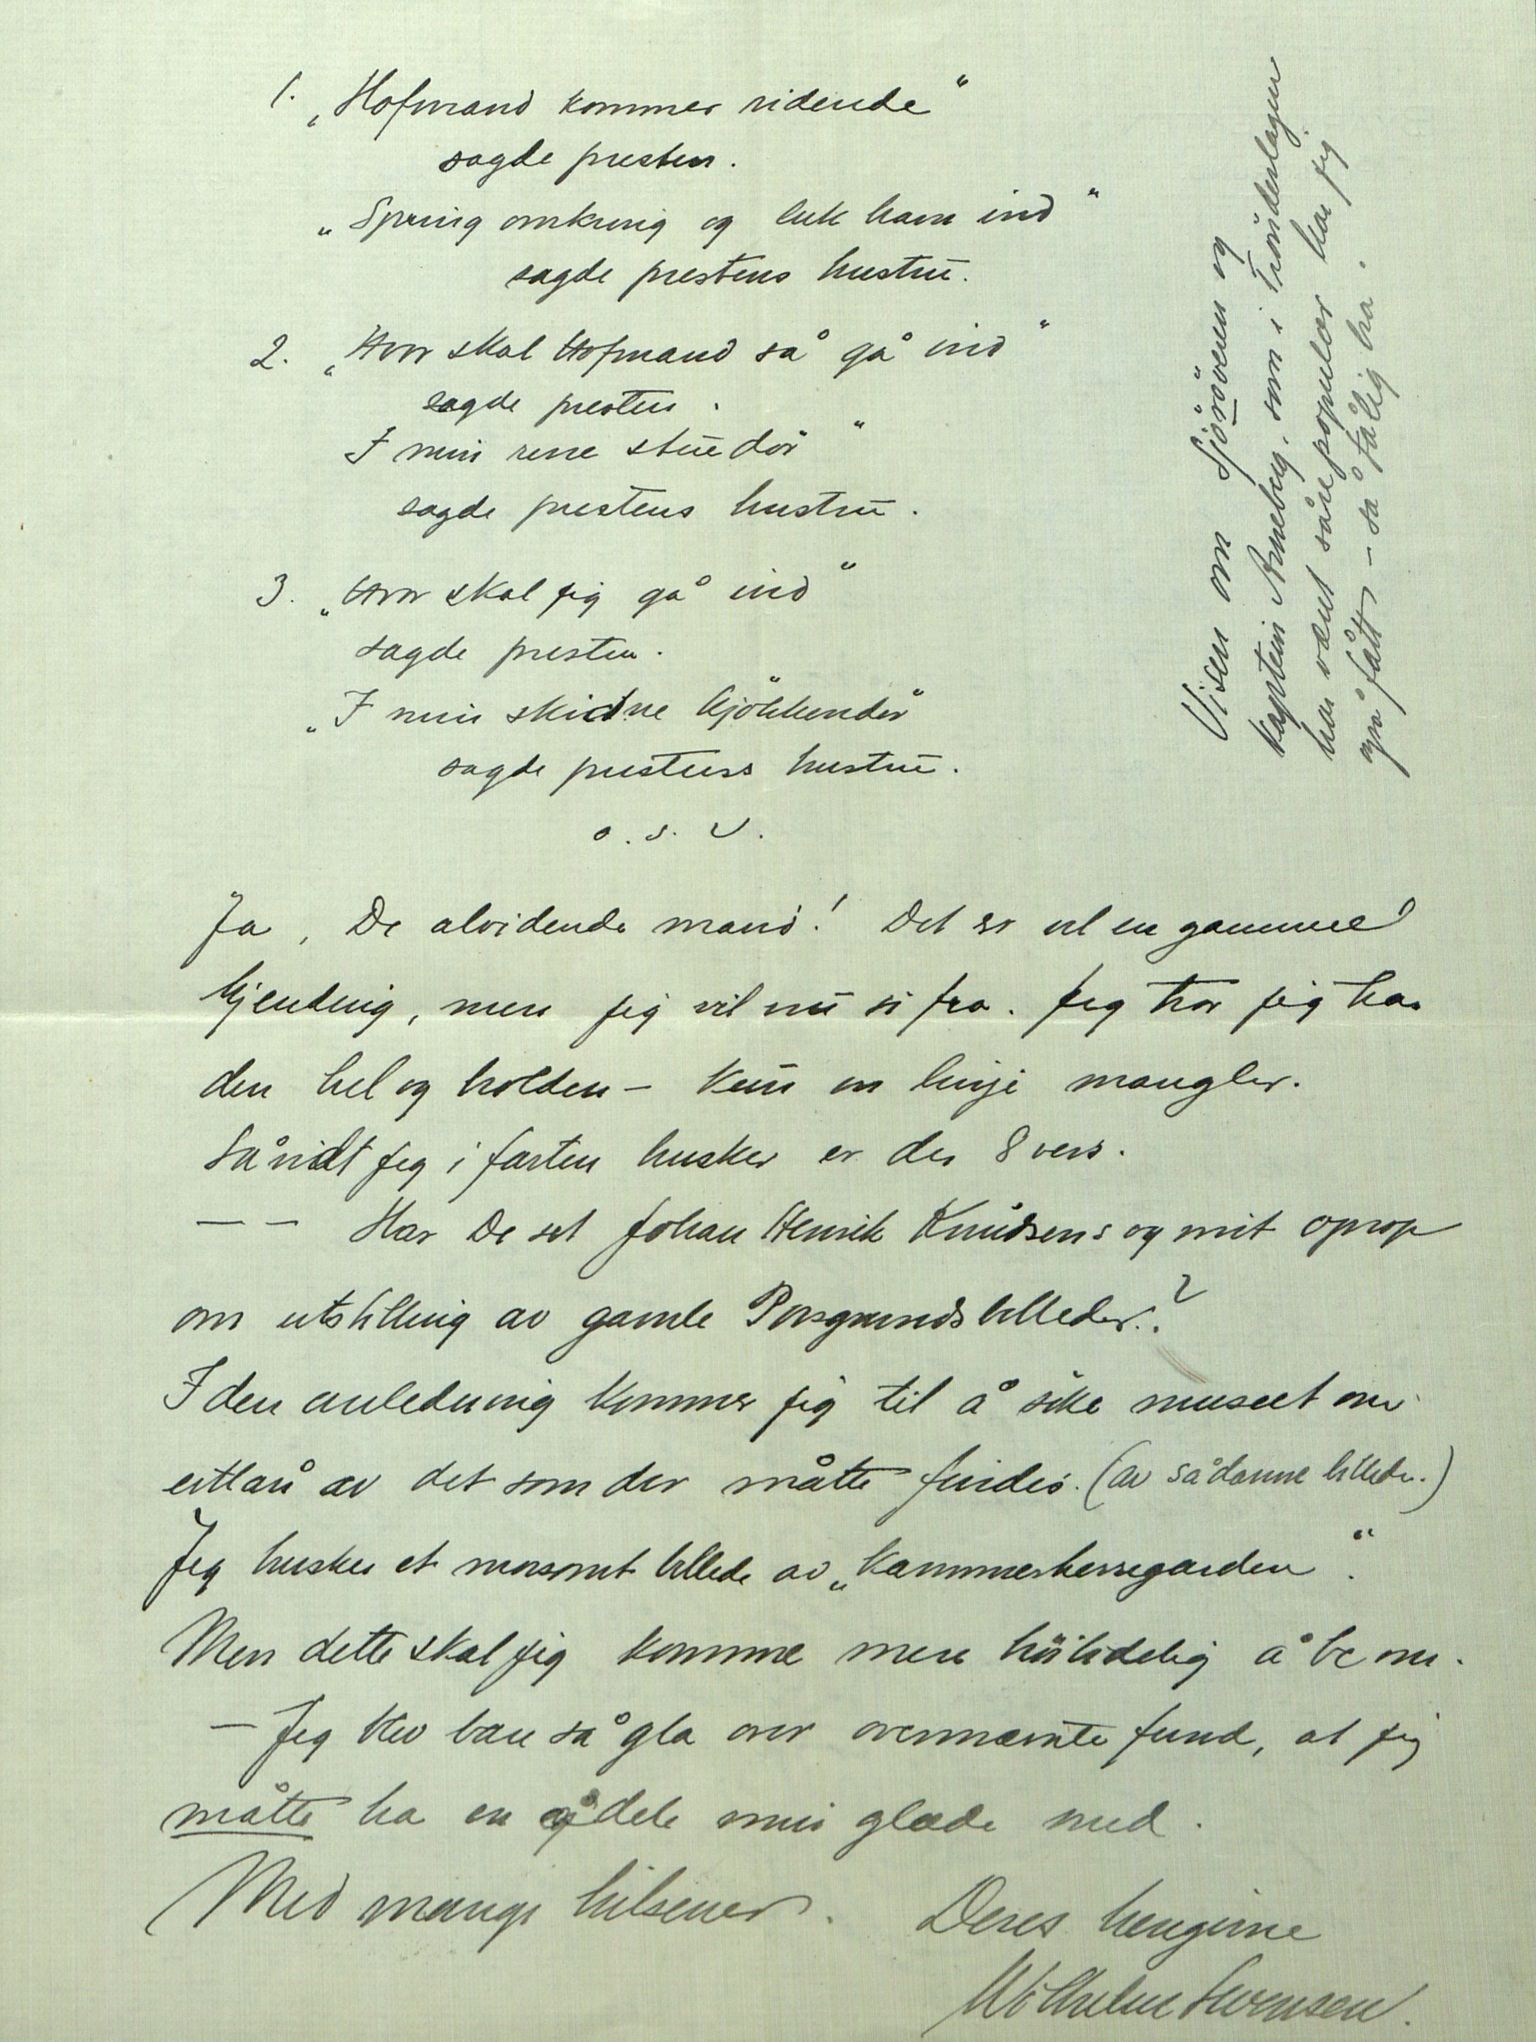 1. „Hofmand kommer ridende“
sagde presten.
„Spring omkring og luk ham ind“
sagde prestens hustru.
2. „Hvor skal Hofmand så gå ind“
sagde presten.
I min rene stuedör“
sagde prestens hustru.
3. „Hvor skal jeg gå ind“
sagde presten.
„I min skidne kjökkendör“
sagde prestens hustru.
o.s.v.
Ja, De alvidende mand! Det er vel en gammel
kjending, men jeg vil nu si fra. Jeg tror jeg har
den hel og holden – kun en linje mangler.
Såvidt jeg i farten husker er der 8 vers.
– – Har De set Johan Henrik Knudsens og mit oprop
om utstilling av gamle Porsgrundsbilleder?
I den anledning kommer jeg til å söke museet om
utlån av det som der måtte findes. (av sådanne billeder.)
Jeg husker et morsomt billede av „Kammerherregarden“.
Men dette skal jeg komme mere höitidelig å be om.
– Jeg blev bare så gla over ovennævnte fund, at jeg
måtte ha en å dele min glæde med.
Med mange hilsener. Deres hengivne
Wilhelm Svensen.
Visen om Sjöröveren og
kaptein Anneberg, som i Tröndelagen
har været såre populær har jeg
også fått – så fålig bra.